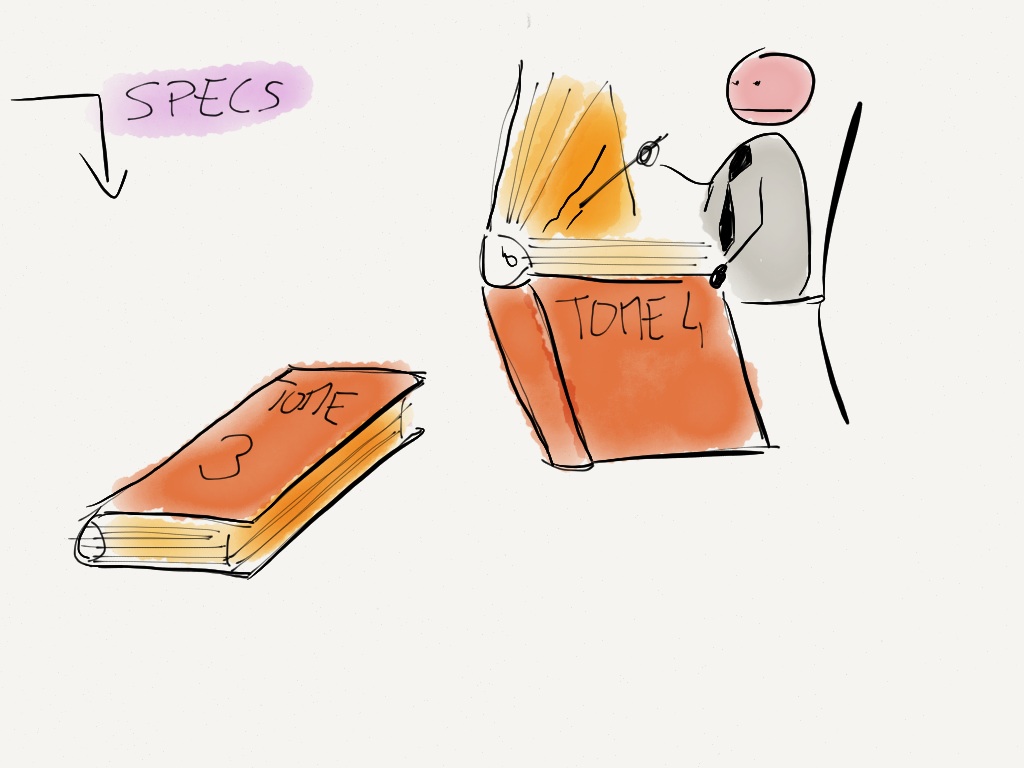 SPECS
TOME 4
TOME
3